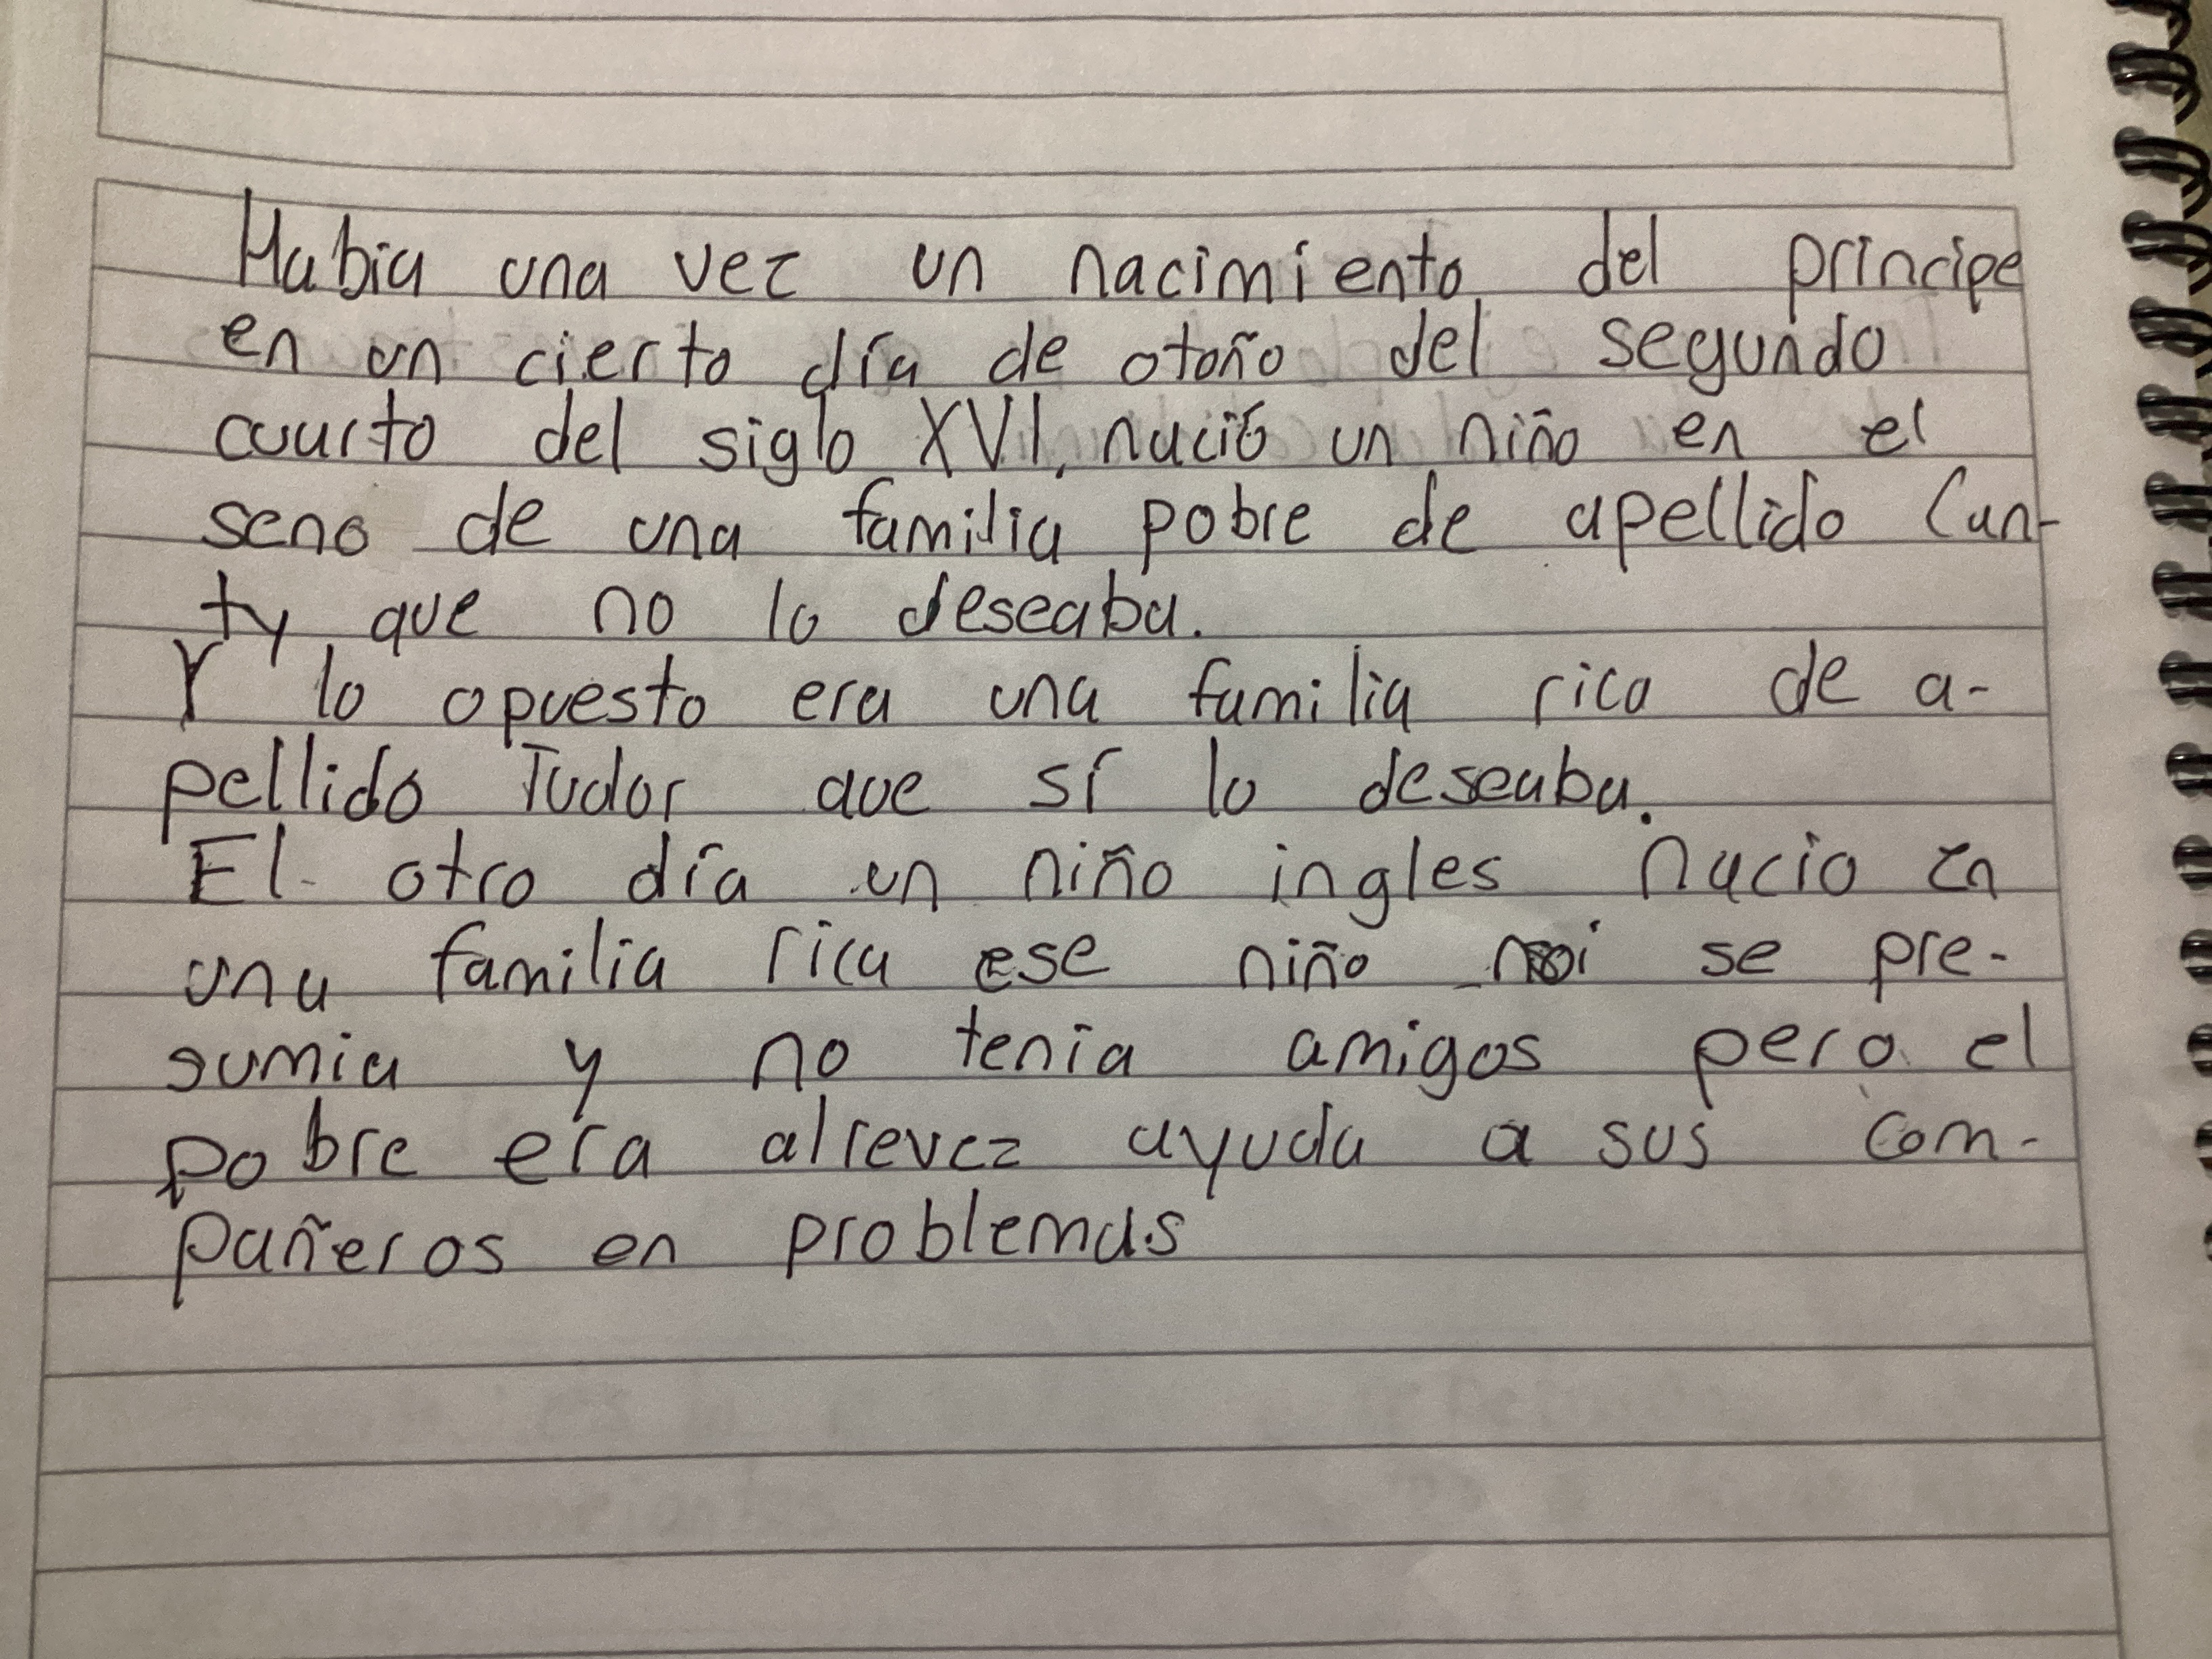 Habia una vez un nacimiento del principe
en un cierto día de otoño del segundo
cuarto del siglo XVI, nació un niño en el
seno de una familia pobre de apellido Can-
ty que no lo deseaba.
Y lo opuesto era una familia rica de a-
pellido Tudor que sí lo deseaba.
El otro día un niño ingles nacio en
una familia rica ese niño se pre-
sumia y no tenia amigos pero el
pobre era alrevez ayuda a sus com-
pañeros en problemas